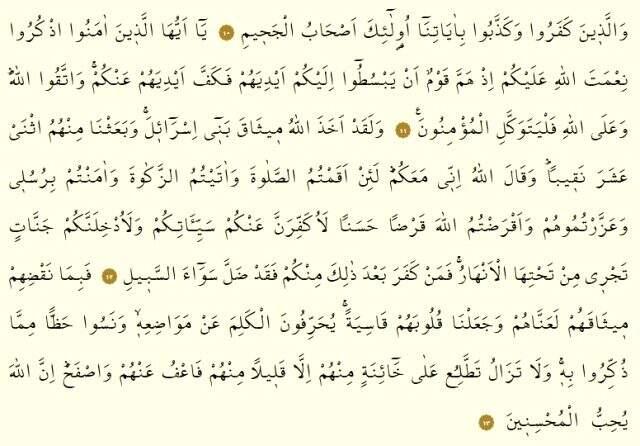 وَالَّذ۪ينَ كَفَرُوا وَكَذَّبُوا بِاٰيَاتِنَٓا اُو۬لٰٓئِكَ اَصْحَابُ الْجَح۪يمِ ﴿١٠﴾ يَٓا اَيُّهَا الَّذ۪ينَ اٰمَنُوا اذْكُرُوا
نِعْمَتَ اللّٰهِ عَلَيْكُمْ اِذْ هَمَّ قَوْمٌ اَنْ يَبْسُطُٓوا اِلَيْكُمْ اَيْدِيَهُمْ فَكَفَّ اَيْدِيَهُمْ عَنْكُمْۚ وَاتَّقُوا اللّٰهَۜ
وَعَلَى اللّٰهِ فَلْيَتَوَكَّلِ الْمُؤْمِنُونَ۟ ﴿١١﴾ وَلَقَدْ اَخَذَ اللّٰهُ م۪يثَاقَ بَن۪ٓي اِسْرَٓائ۪لَۚ وَبَعَثْنَا مِنْهُمُ اثْنَيْ
عَشَرَ نَق۪يباًۜ وَقَالَ اللّٰهُ اِنّ۪ي مَعَكُمْۜ لَئِنْ اَقَمْتُمُ الصَّلٰوةَ وَاٰتَيْتُمُ الزَّكٰوةَ وَاٰمَنْتُمْ بِرُسُل۪ي
وَعَزَّرْتُمُوهُمْ وَاَقْرَضْتُمُ اللّٰهَ قَرْضًا حَسَنًا لَاُكَفِّرَنَّ عَنْكُمْ سَيِّـَٔاتِكُمْ وَلَاُدْخِلَنَّكُمْ جَنَّاتٍ
تَجْر۪ي مِنْ تَحْتِهَا الْاَنْهَارُۚ فَمَنْ كَفَرَ بَعْدَ ذٰلِكَ مِنْكُمْ فَقَدْ ضَلَّ سَوَٓاءَ السَّب۪يلِ ﴿١٢﴾ فَبِمَا نَقْضِهِمْ
م۪يثَاقَهُمْ لَعَنَّاهُمْ وَجَعَلْنَا قُلُوبَهُمْ قَاسِيَةًۚ يُحَرِّفُونَ الْكَلِمَ عَنْ مَوَاضِعِه۪ۙ وَنَسُوا حَظًّا مِمَّا
ذُكِّرُوا بِه۪ۚ وَلَا تَزَالُ تَطَّلِعُ عَلٰى خَٓائِنَةٍ مِنْهُمْ اِلَّا قَل۪يلًا مِنْهُمْ فَاعْفُ عَنْهُمْ وَاصْفَحْۜ اِنَّ اللّٰهَ
يُحِبُّ الْمُحْسِن۪ينَ ﴿١٣﴾